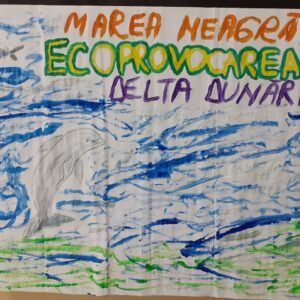 MAREA NEAGRĂ
ECOPROVOCAREA
DELTA DUNĂRI